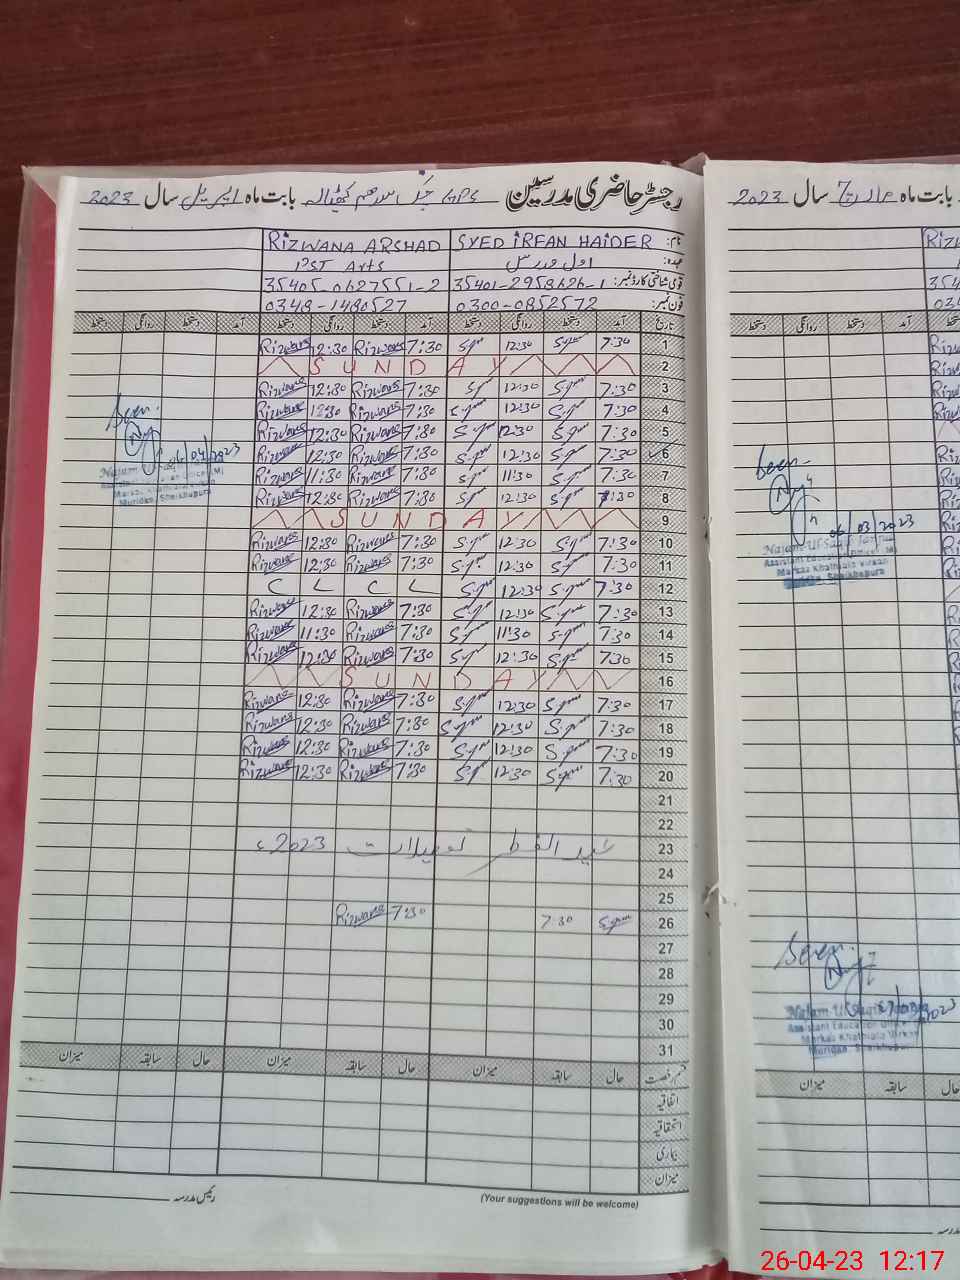 رجسٹر حاضری مدرسین GPS بابت ماہ اپریل سال 2023
نام: SYED IRFAN HAIDER RIZWANA ARSHAD
عہدہ: اول مدرس PST Arts
قومی شناختی کارڈ نمبر: 35401-2958626-1 35405-0627551-2
فون نمبر: 0300-0852572 0348-1480527
تاریخ آمد دستخط روانگی دستخط آمد دستخط روانگی دستخط آمد دستخط روانگی دستخط
1 7:30 12:30 7:30 Rizwana 12:30 Rizwana
2 SUNDAY
3 7:30 12:30 7:30 Rizwana 12:30 Rizwana
4 7:30 12:30 7:30 Rizwana 12:30 Rizwana
5 7:30 12:30 7:30 Rizwana 12:30 Rizwana
6 7:30 12:30 7:30 Rizwana 12:30 Rizwana
7 7:30 11:30 7:30 Rizwana 11:30 Rizwana
8 7:30 12:30 7:30 Rizwana 12:30 Rizwana
9 SUNDAY
10 7:30 12:30 7:30 Rizwana 12:30 Rizwana
11 7:30 12:30 7:30 Rizwana 12:30 Rizwana
12 7:30 12:30 C L C L
13 7:30 12:30 7:30 Rizwana 12:30 Rizwana
14 7:30 11:30 7:30 Rizwana 11:30 Rizwana
15 7:30 12:30 7:30 Rizwana 12:30 Rizwana
16 SUNDAY
17 7:30 12:30 7:30 Rizwana 12:30 Rizwana
18 7:30 12:30 7:30 Rizwana 12:30 Rizwana
19 7:30 12:30 7:30 Rizwana 12:30 Rizwana
20 7:30 12:30 7:30 Rizwana 12:30 Rizwana
21
22
23 عید الفطر تعطیلات 2023ء
24
25
26 7:30 7:30 Rizwana
27
28
29
30
31
قسم رخصت حال سابقہ میزان حال سابقہ میزان حال سابقہ میزان
اتفاقیہ
استحقاقیہ
بیماری
میزان
رئیس مدرسہ
(Your suggestions will be welcome)
Seen.
06/04/2023
Markaz Khathiala Virkan
Muridke, Sheikhupura
بابت ماہ مارچ سال 2023
دستخط روانگی دستخط آمد
Seen.
06/03/2023
Najam-Ul-Saqib
Assistant Education Officer (M)
Markaz Khathiala Virkan
Muridke, Sheikhupura
Seen.
Najam-Ul-Saqib
Assistant Education Officer
Markaz Khathiala Virkan
Muridke, Sheikhupura
میزان سابقہ حال
26-04-23 12:17